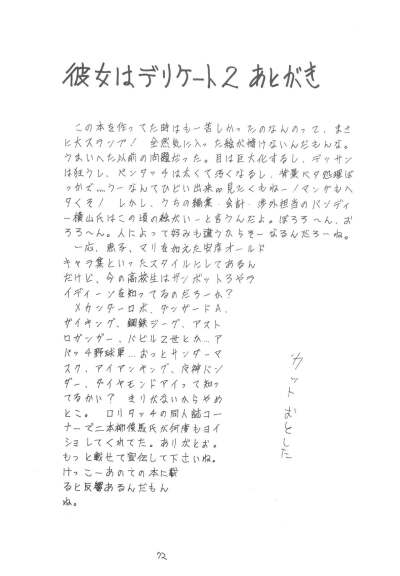 彼女はデリケート2 あとがき
この本を作ってた時はも一苦しかったのなんのって、まさ
に大スランプ! 全然気に入った絵が描けないんだもんな。
うまいへた以前の問題だった。目は巨大化するし、デッサン
は狂うし、ペンタッチは太くて汚くなるし、背景ベタ処理ば
っかで…うーなんてひどい出来∞見たくもねー!マンガもヘ
タくそ! しかし、うちの編集・会計・渉外担当のバンディ
ー横山氏はこの頃の絵がいーと言うんだよ。ぼろろ〜ん、お
ろろ〜ん。人によって好みも違うからそーなるんだろーね。
一応、恵子、マリを加えた安彦オールド
キャラ集といったスタイルにしてあるん
だけど、今の高校生はザンボット3やラ
イディーンを知ってるのだろーか?
メカンダーロボ、タンサードA、
ザイキング、鋼鉄ジーグ、アスト
ロガンガー、バビル2世とか…ア
パッチ野球軍…おっとサンダーマ
スク、アイアンキング、魔神バン
ダー、ダイヤモンドアイって知っ
てるかい? きりがないからやめ
とこ。 ロリタッチの同人誌コー
ナーで二本柳俊馬氏が何度もヨイ
ショしてくれてた。ありがとお。
もっと載せて宣伝して下さいね。
けっこーあのての本に載
ると反響あるんだもん
ね。
カットむとした
72